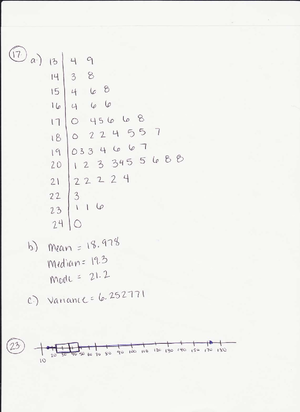 17
a) 13 | 4 9
14 | 3 8
15 | 4 6 8
16 | 4 6 6
17 | 0 4 5 6 6 8
18 | 0 2 2 4 5 5 7
19 | 0 3 3 4 6 6 7
20 | 1 2 3 3 4 5 5 6 8 8
21 | 2 2 2 2 4
22 | 3
23 | 1 1 6
24 | 0
b) Mean = 18.978
Median = 19.3
Mode = 21.2
c) Variance = 6.252771
23
10 20 30 40 50 60 70 80 90 100 110 120 130 140 150